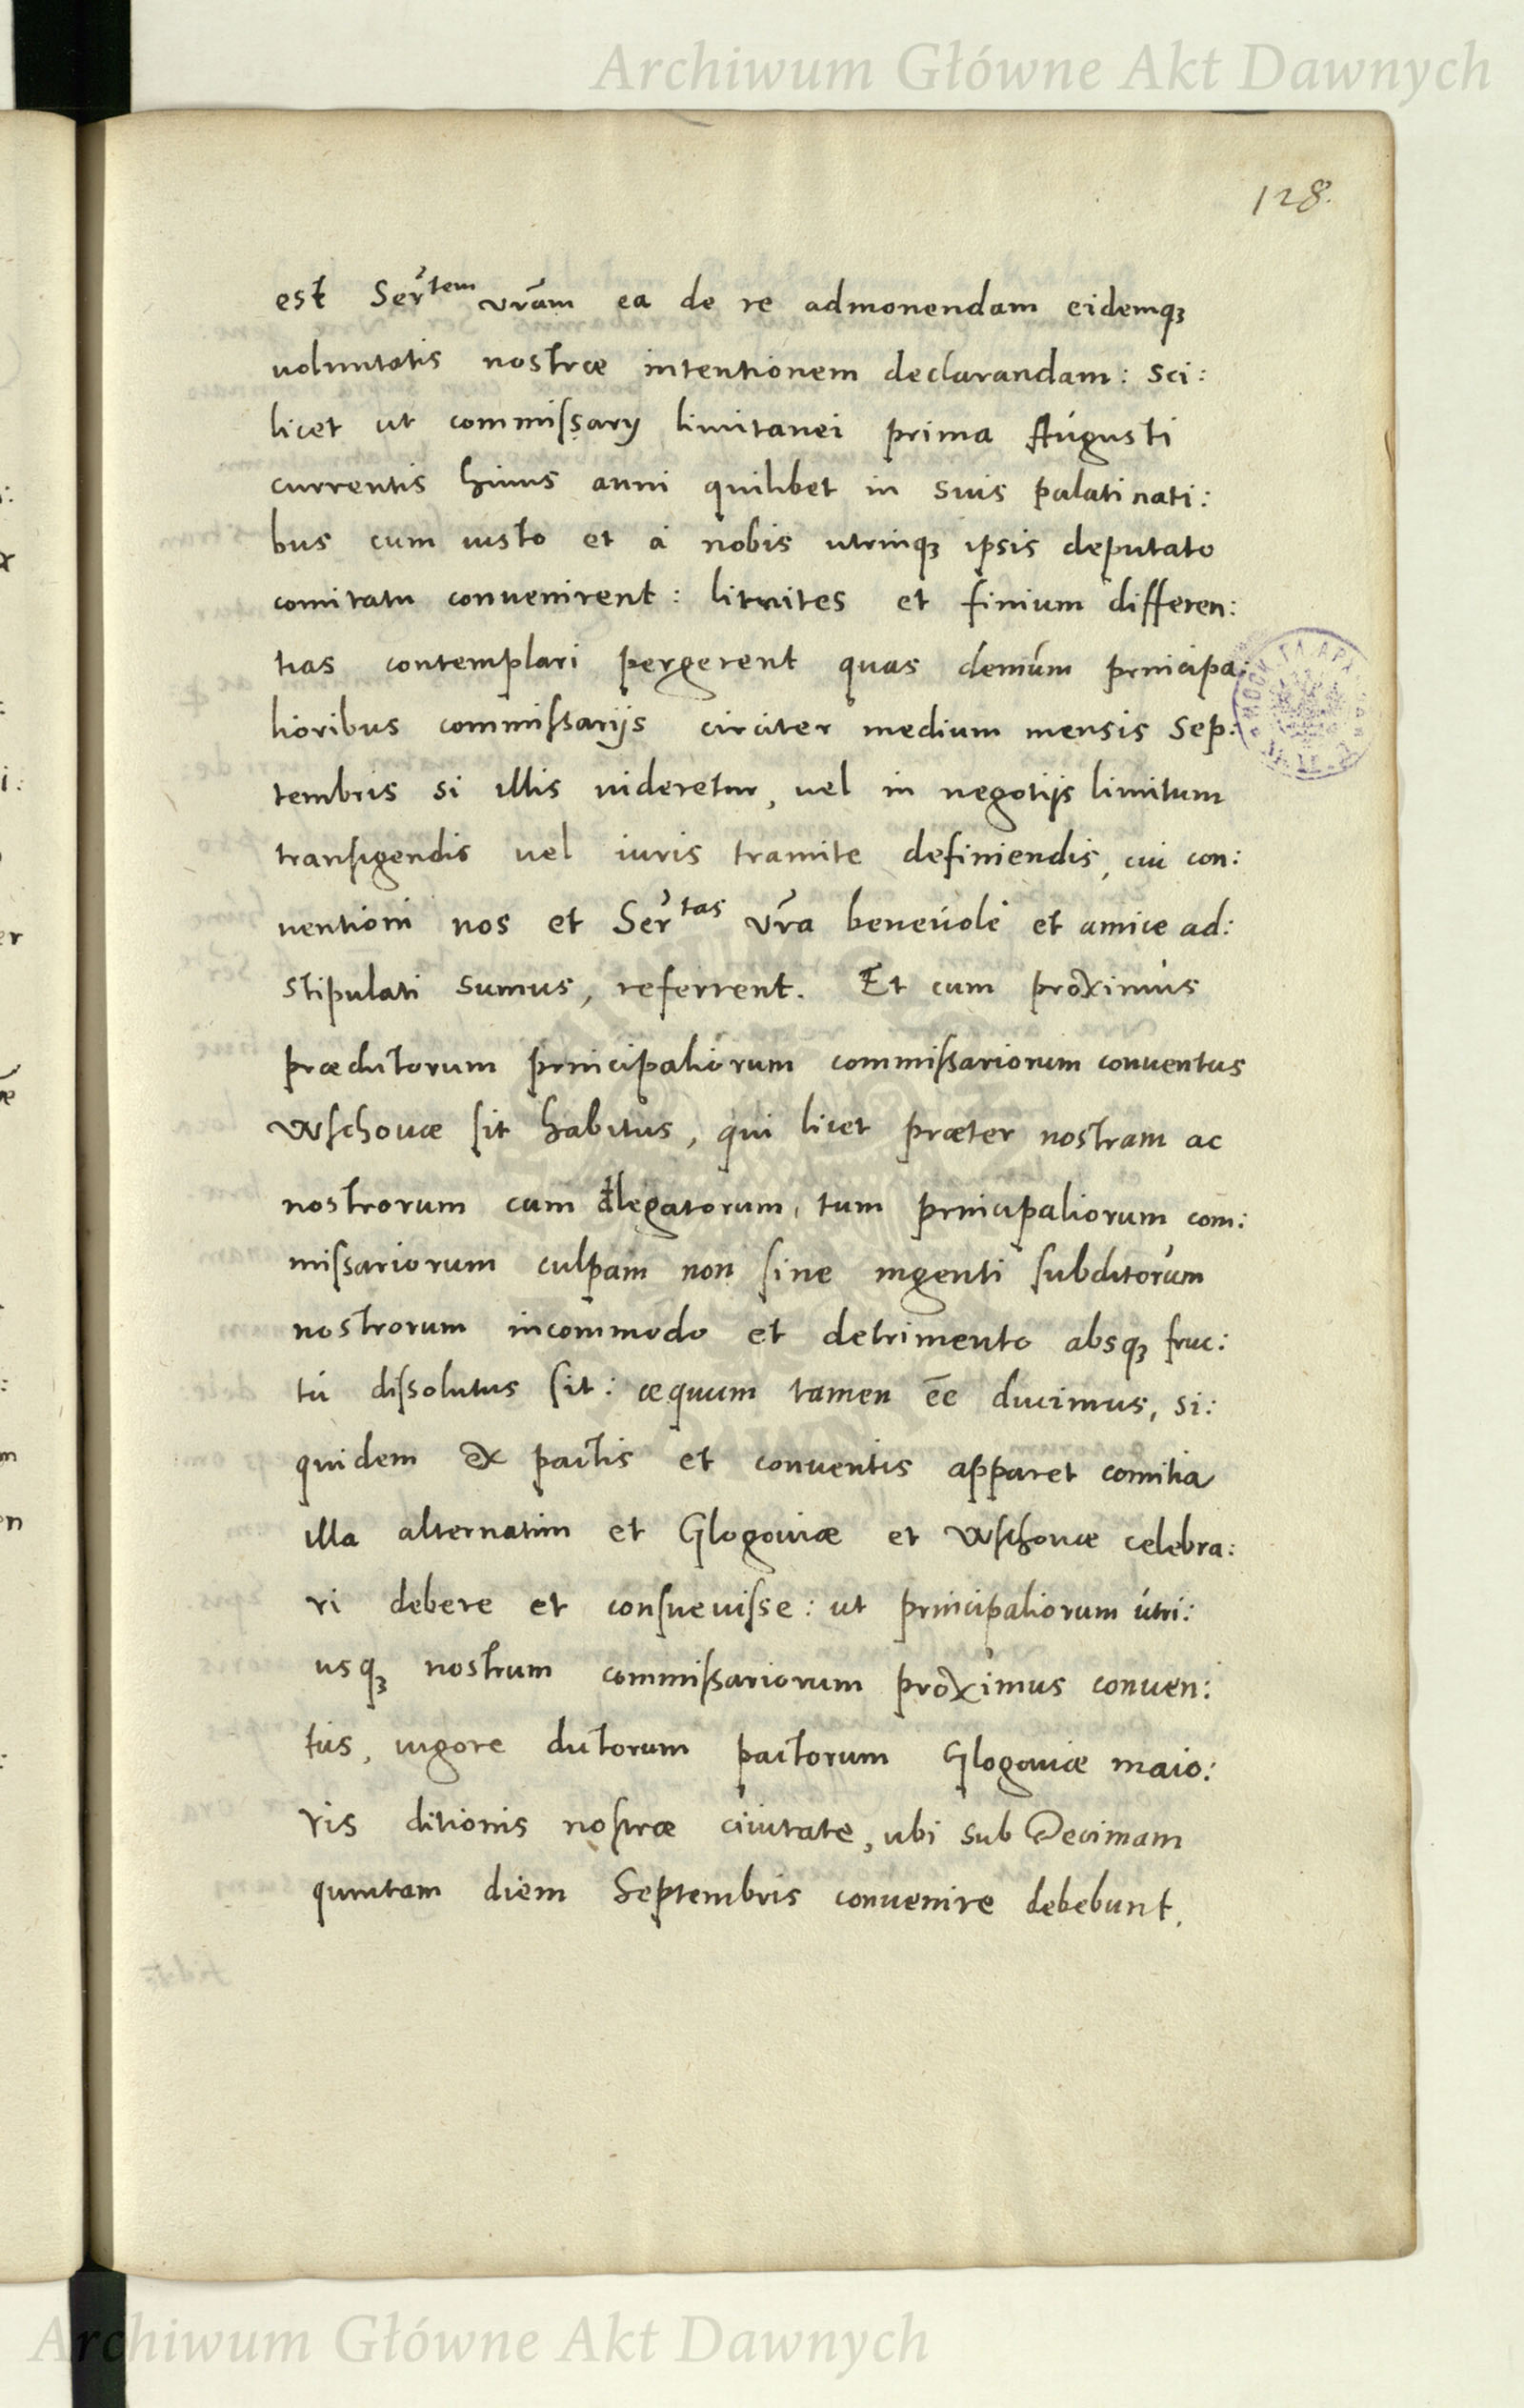 Archiwum Główne Akt Dawnych
128.
est Ser̃tem vrãm ea de re admonendam eidemqꝫ
uoluntatis nostræ intentionem declarandam: sci:
licet ut commissarij limitanei prima Augusti
currentis huius anni quilibet in suis palatinati:
bus cum iusto et à nobis utrinqꝫ ipsis deputato
comitatu conuenirent: limites et finium differen:
tias contemplari pergerent quas demùm principa:
lioribus commissarijs circiter medium mensis Sep:
tembris si illis uideretur, uel in negotijs limitum
transigendis uel iuris tramite definiendis, cui con:
uentioni nos et Ser̃tas vr̃a beneuolè et amice ad:
stipulati sumus, referrent. Et cum proximus
prædictorum principaliorum commissariorum conuentus
Wschouæ sit habitus, qui licet præter nostram ac
nostrorum cum delegatorum, tum principaliorum com:
missariorum culpam non sine ingenti subditorum
nostrorum incommodo et detrimento absqꝫ fruc:
tú dissolutus sit: æquum tamen ēe ducimus, si:
quidem ex pactis et conuentis apparet comitia
illa alternatim et Glogouiæ et Wschouæ celebra:
ri debere et consueuisse: ut principaliorum utri:
usqꝫ nostrum commissariorum proximus conuen:
tus, uigore dictorum pactorum Glogouiæ maio:
ris ditionis nostræ ciuitate, ubi sub Decimam
quintam diem Septembris conuenire debebunt.
Archiwum Główne Akt Dawnych